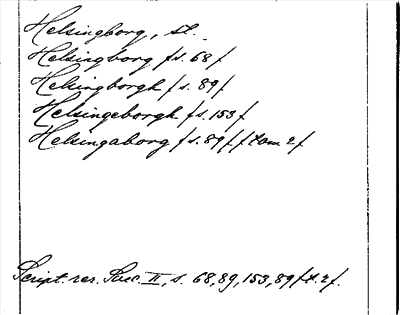 Helsingborg, sl.
Helsingborg /s. 68/
Helsingborgh /s. 89/
Helsingeborgh /s. 153/
Helsingaborg /s. 89/ /tom 2/
Script. rer. Suec. II, s. 68, 89, 153, 89 /t. 2/.